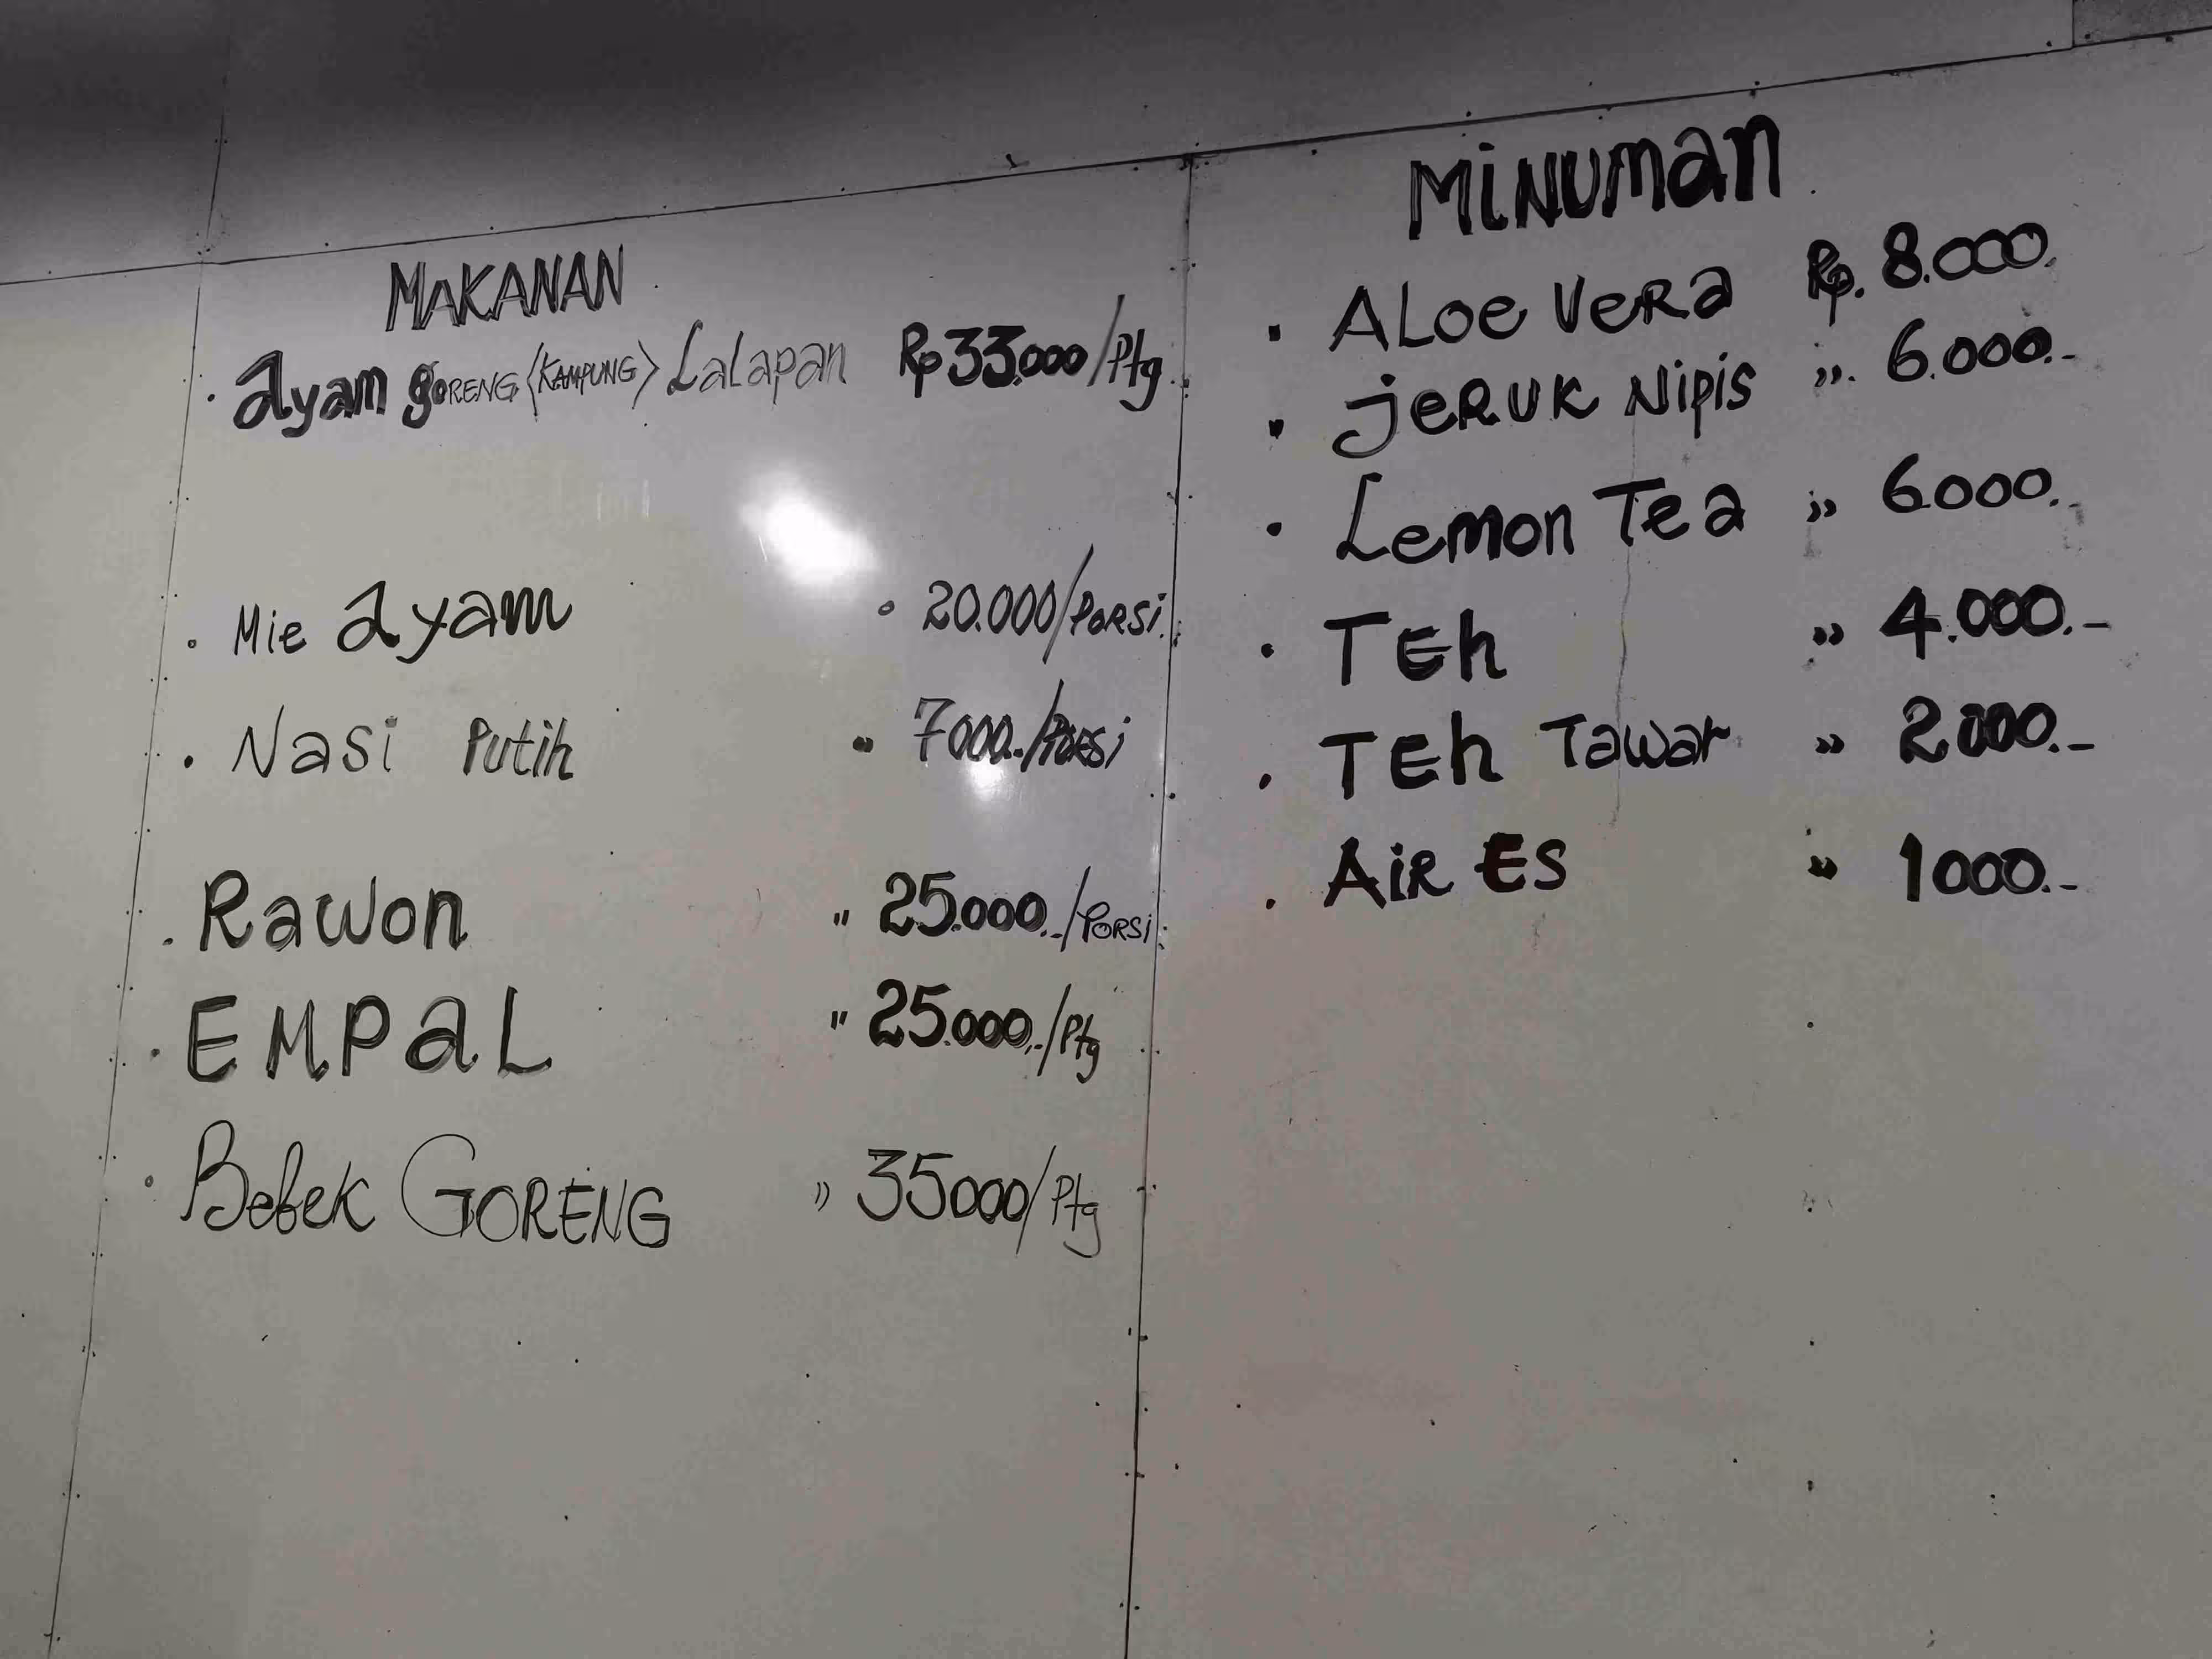 MAKANAN
· Ayam goRENG (KAMPUNG) Lalapan Rp 33.000/Ptg
· Mie Ayam " 20.000/PORSi
· Nasi Putih " 7000../PORSi
· Rawon " 25.000.-/PORSi
· EMPaL " 25.000.-/Ptg
· Bebek GORENG " 35000/Ptg
MiNUman
· ALoe VeRa Rp. 8.000.
· jeRUK Nipis ". 6.000.-
· Lemon Tea " 6000.-
· TEh " 4.000.-
· TEh Tawar " 2000.-
· AiR ES " 1000.-